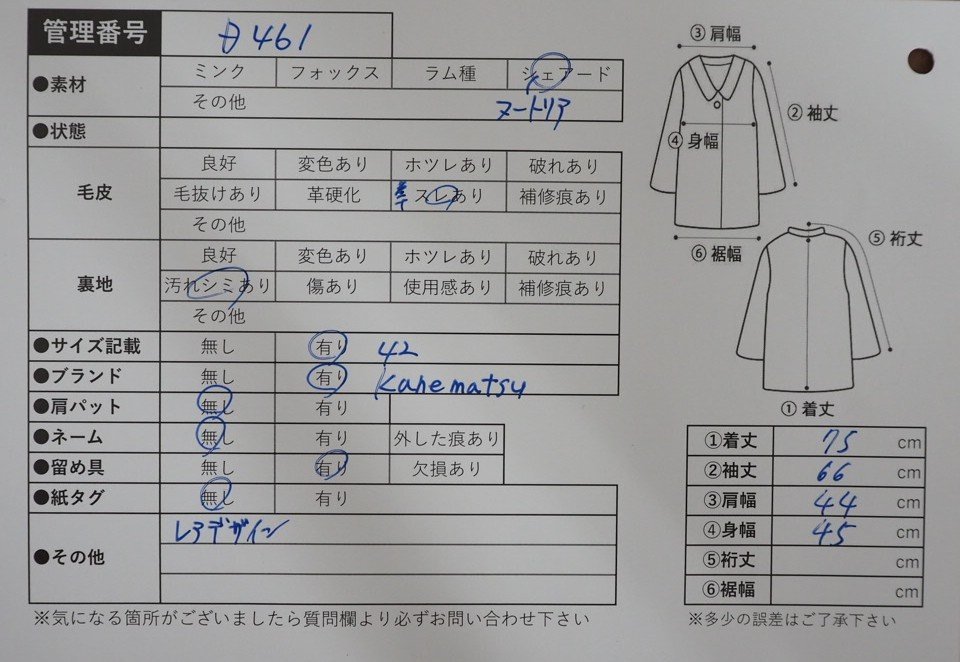 管理番号 日461
③肩幅
●素材 ミンク フォックス ラム種 シェアード
その他 ヌートリア
②袖丈
●状態
④身幅
毛皮 良好 変色あり ホツレあり 破れあり
毛抜けあり 革硬化 スレあり 補修痕あり
その他
⑤裄丈
⑥裾幅
裏地 良好 変色あり ホツレあり 破れあり
汚れシミあり 傷あり 使用感あり 補修痕あり
その他
●サイズ記載 無し 有り 42
●ブランド 無し 有り Kanematsu
●肩パット 無し 有り
①着丈
●ネーム 無し 有り 外した痕あり
●留め具 無し 有り 欠損あり
●紙タグ 無し 有り
●その他 レアデザイン
①着丈 75 cm
②袖丈 66 cm
③肩幅 44 cm
④身幅 45 cm
⑤裄丈 cm
⑥裾幅 cm
※気になる箇所がございましたら質問欄より必ずお問い合わせ下さい
※多少の誤差はご了承下さい